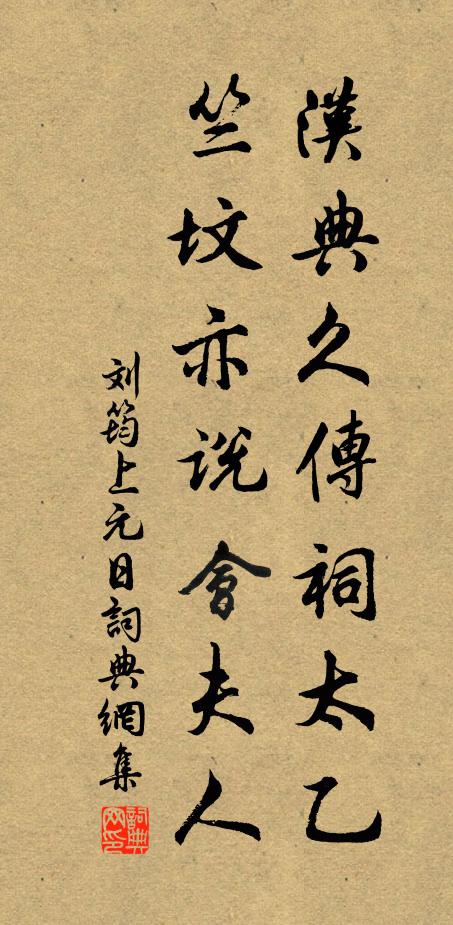 漢典久傳祠太乙
竺坟亦説會夫人
刘筠上元日詞典網集
詞典网印